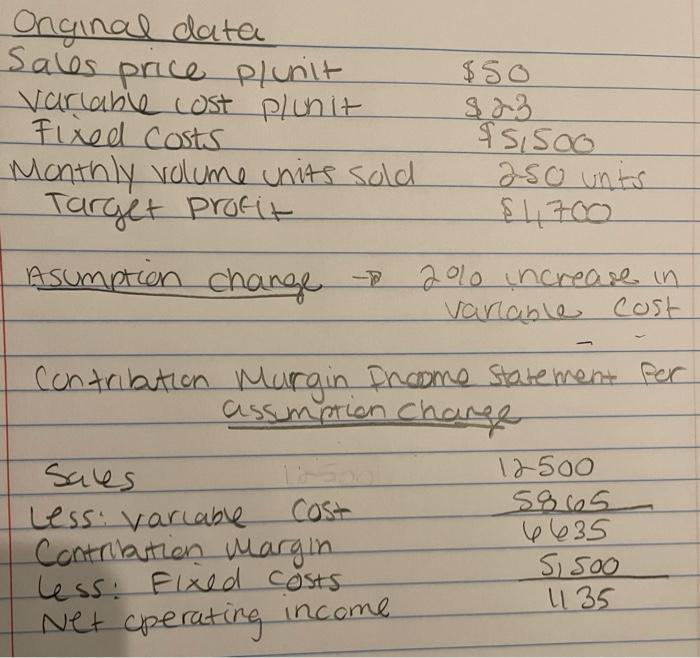 Original data
Sales price p/unit $50
Variable cost p/unit $23
Fixed costs $5,500
Monthly volume units sold 250 units
Target profit $1,700
Asumption change → 2% increase in
variable cost
Contribution Margin Income Statement Per
assumption change
Sales 12500
Less: variable cost 5865
Contribution Margin 6635
less: Fixed costs 5,500
Net operating income 1135